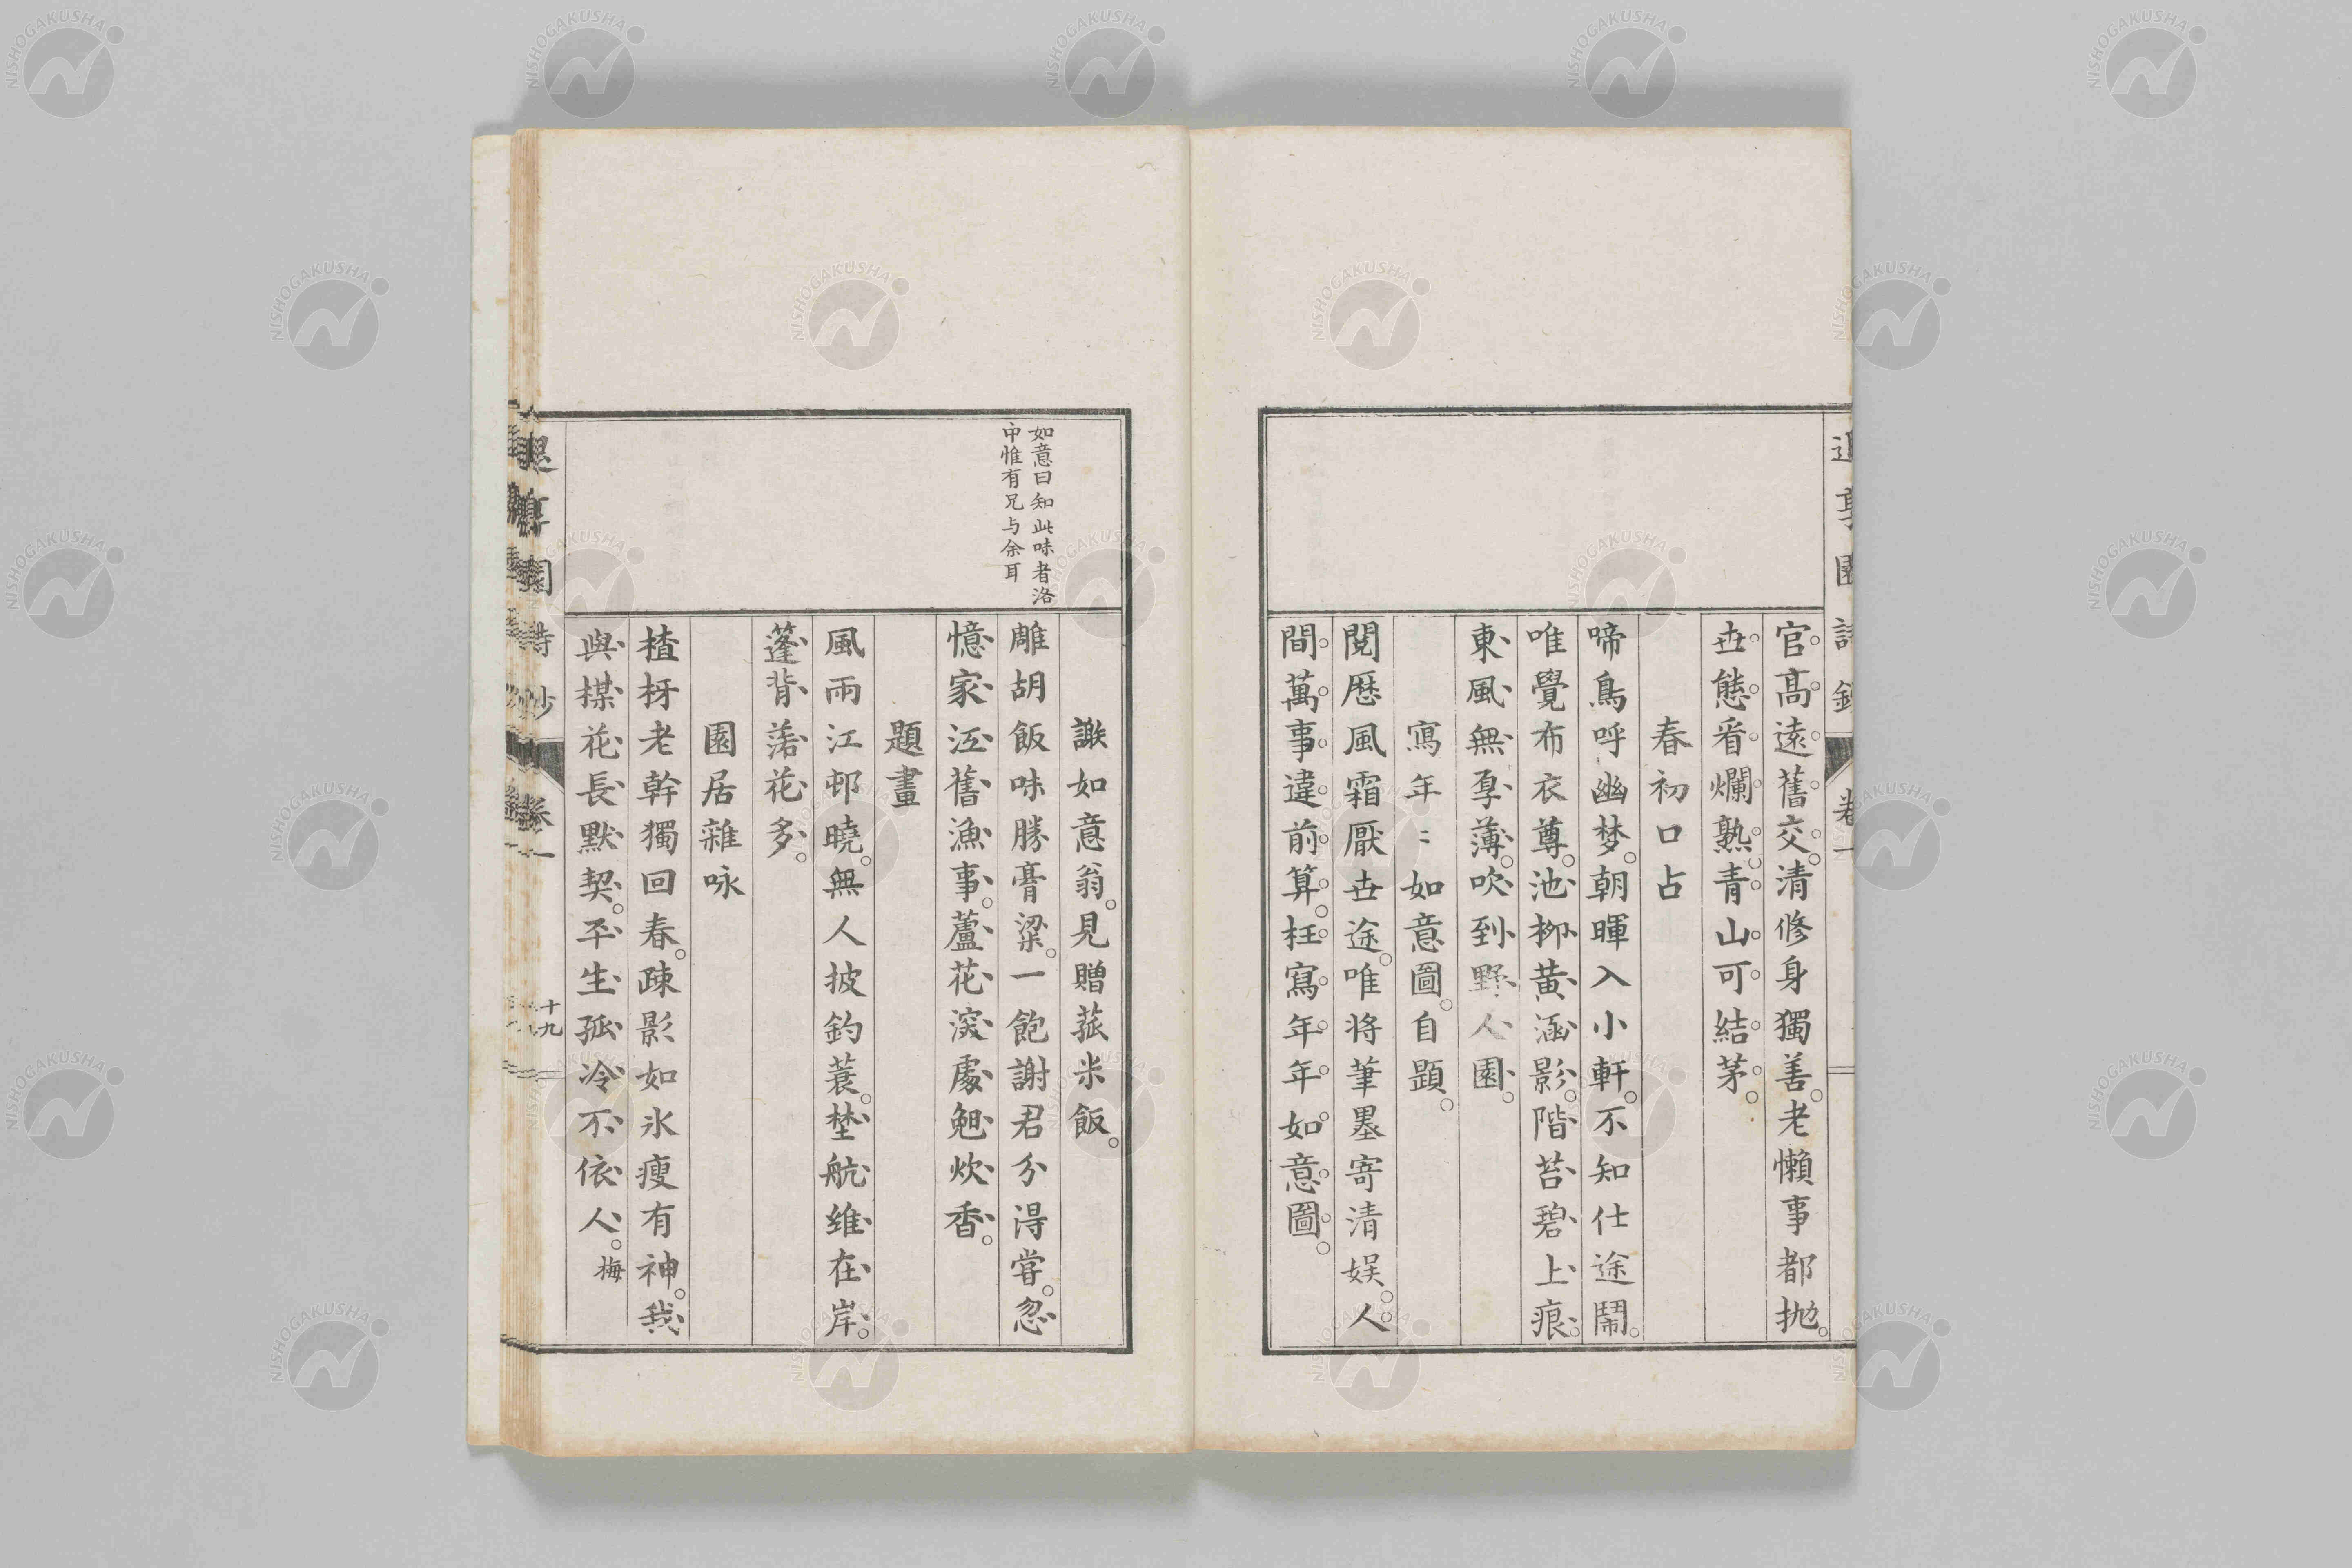 官高遠舊交。清修身獨善。老懶事都抛。
世態看爛熟。青山可結茅。
春初口占
啼鳥呼幽梦。朝暉入小軒。不知仕途鬧。
唯覺布衣尊。池柳黄涵影。階苔碧上痕。
東風無厚薄。吹到野人園。
寫年〻如意圖。自題。
閲歴風霜厭世途。唯将筆墨寄清娯。人
間萬事違前算。枉寫年年如意圖。
如意曰知此味者洛
中惟有兄与余耳
謝如意翁。見贈菰米飯。
雕胡飯味勝膏粱。一飽謝君分得甞。忽
憶家江舊漁事。蘆花深處魨炊香。
題畫
風雨江邨曉。無人披釣蓑。埜航維在岸。
蓬背落花多。
園居雜咏
楂枒老幹獨回春。疎影如氷瘦有神。我
與楳花長默契。平生孤冷不依人。梅
園詩鈔 卷一 十九
NISHOGAKUSHA